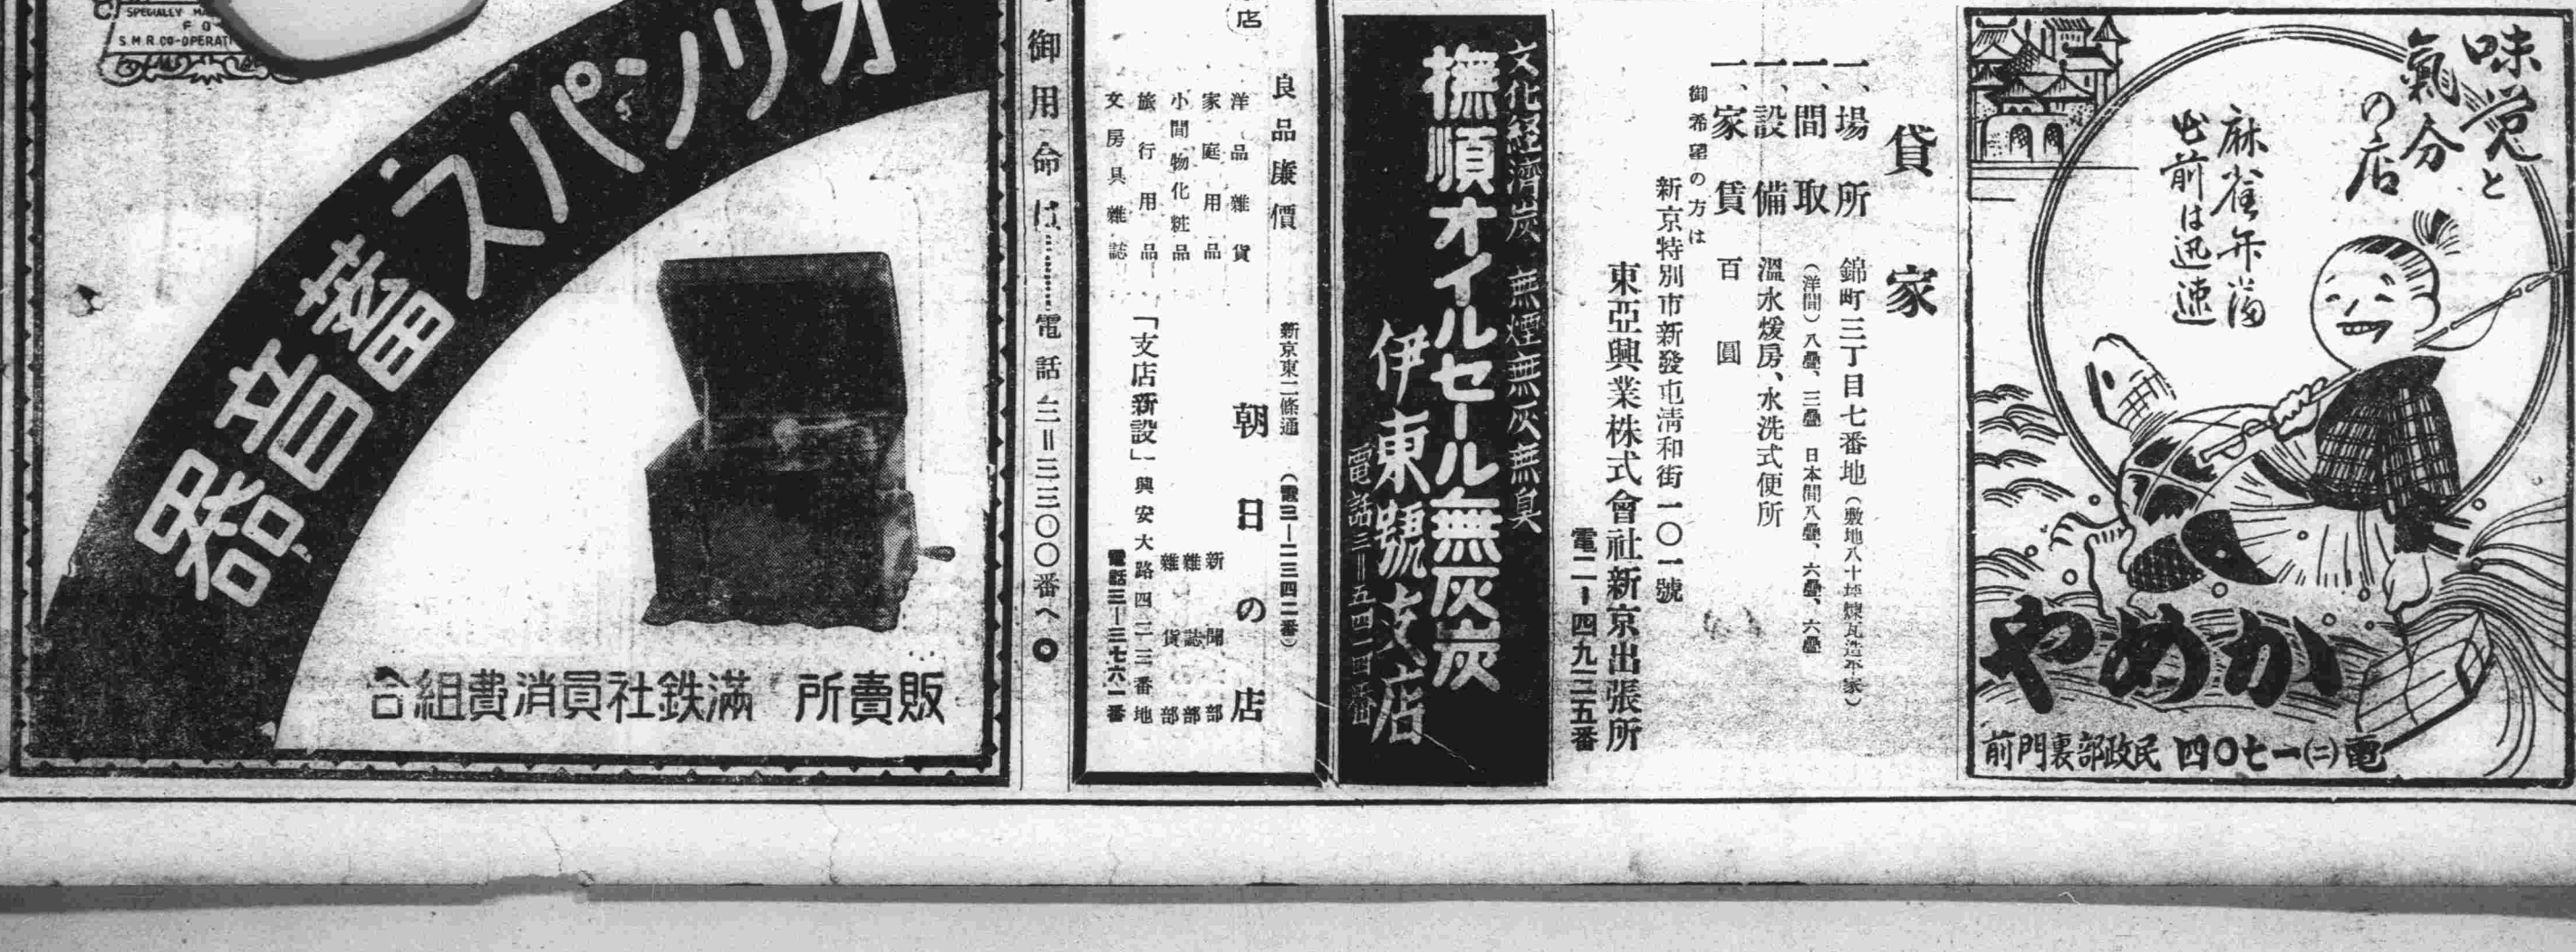 味覚と
氣分
の店
麻雀弁当
出前は迅速
かめや
電㈡一七〇四 民政部裏門前
貸家
一、場所 錦町三丁目七番地(敷地八十坪煉瓦造平家)
一、間取 (洋間)八疊、三疊 日本間八疊、六疊、六疊
一、設備 溫水煖房、水洗式便所
一、家賃 百圓
御希望の方は
新京特別市新發屯淸和街一〇一號
東亞興業株式會社新京出張所
電二ー四九二五番
文化經濟炭 無煙無灰無臭
撫順オイルセール無灰炭
伊東號支店
電話三=五四二四番
店
良品廉價 新京東二條通 (電三―二三四二番)
朝日の店
洋品雜貨 新聞部
家庭用品 雜誌部
小間物化粧品 雜貨部
旅行用品
文房具雜誌
「支店新設」 興安大路四二三番地
電話三―三七六一番
御用命は………電話三=三三〇〇番へ
SPECIALLY
FO
S.M.R.CO-OPERATI
オリンパス蓄音器
販賣所 滿鉄社員消費組合